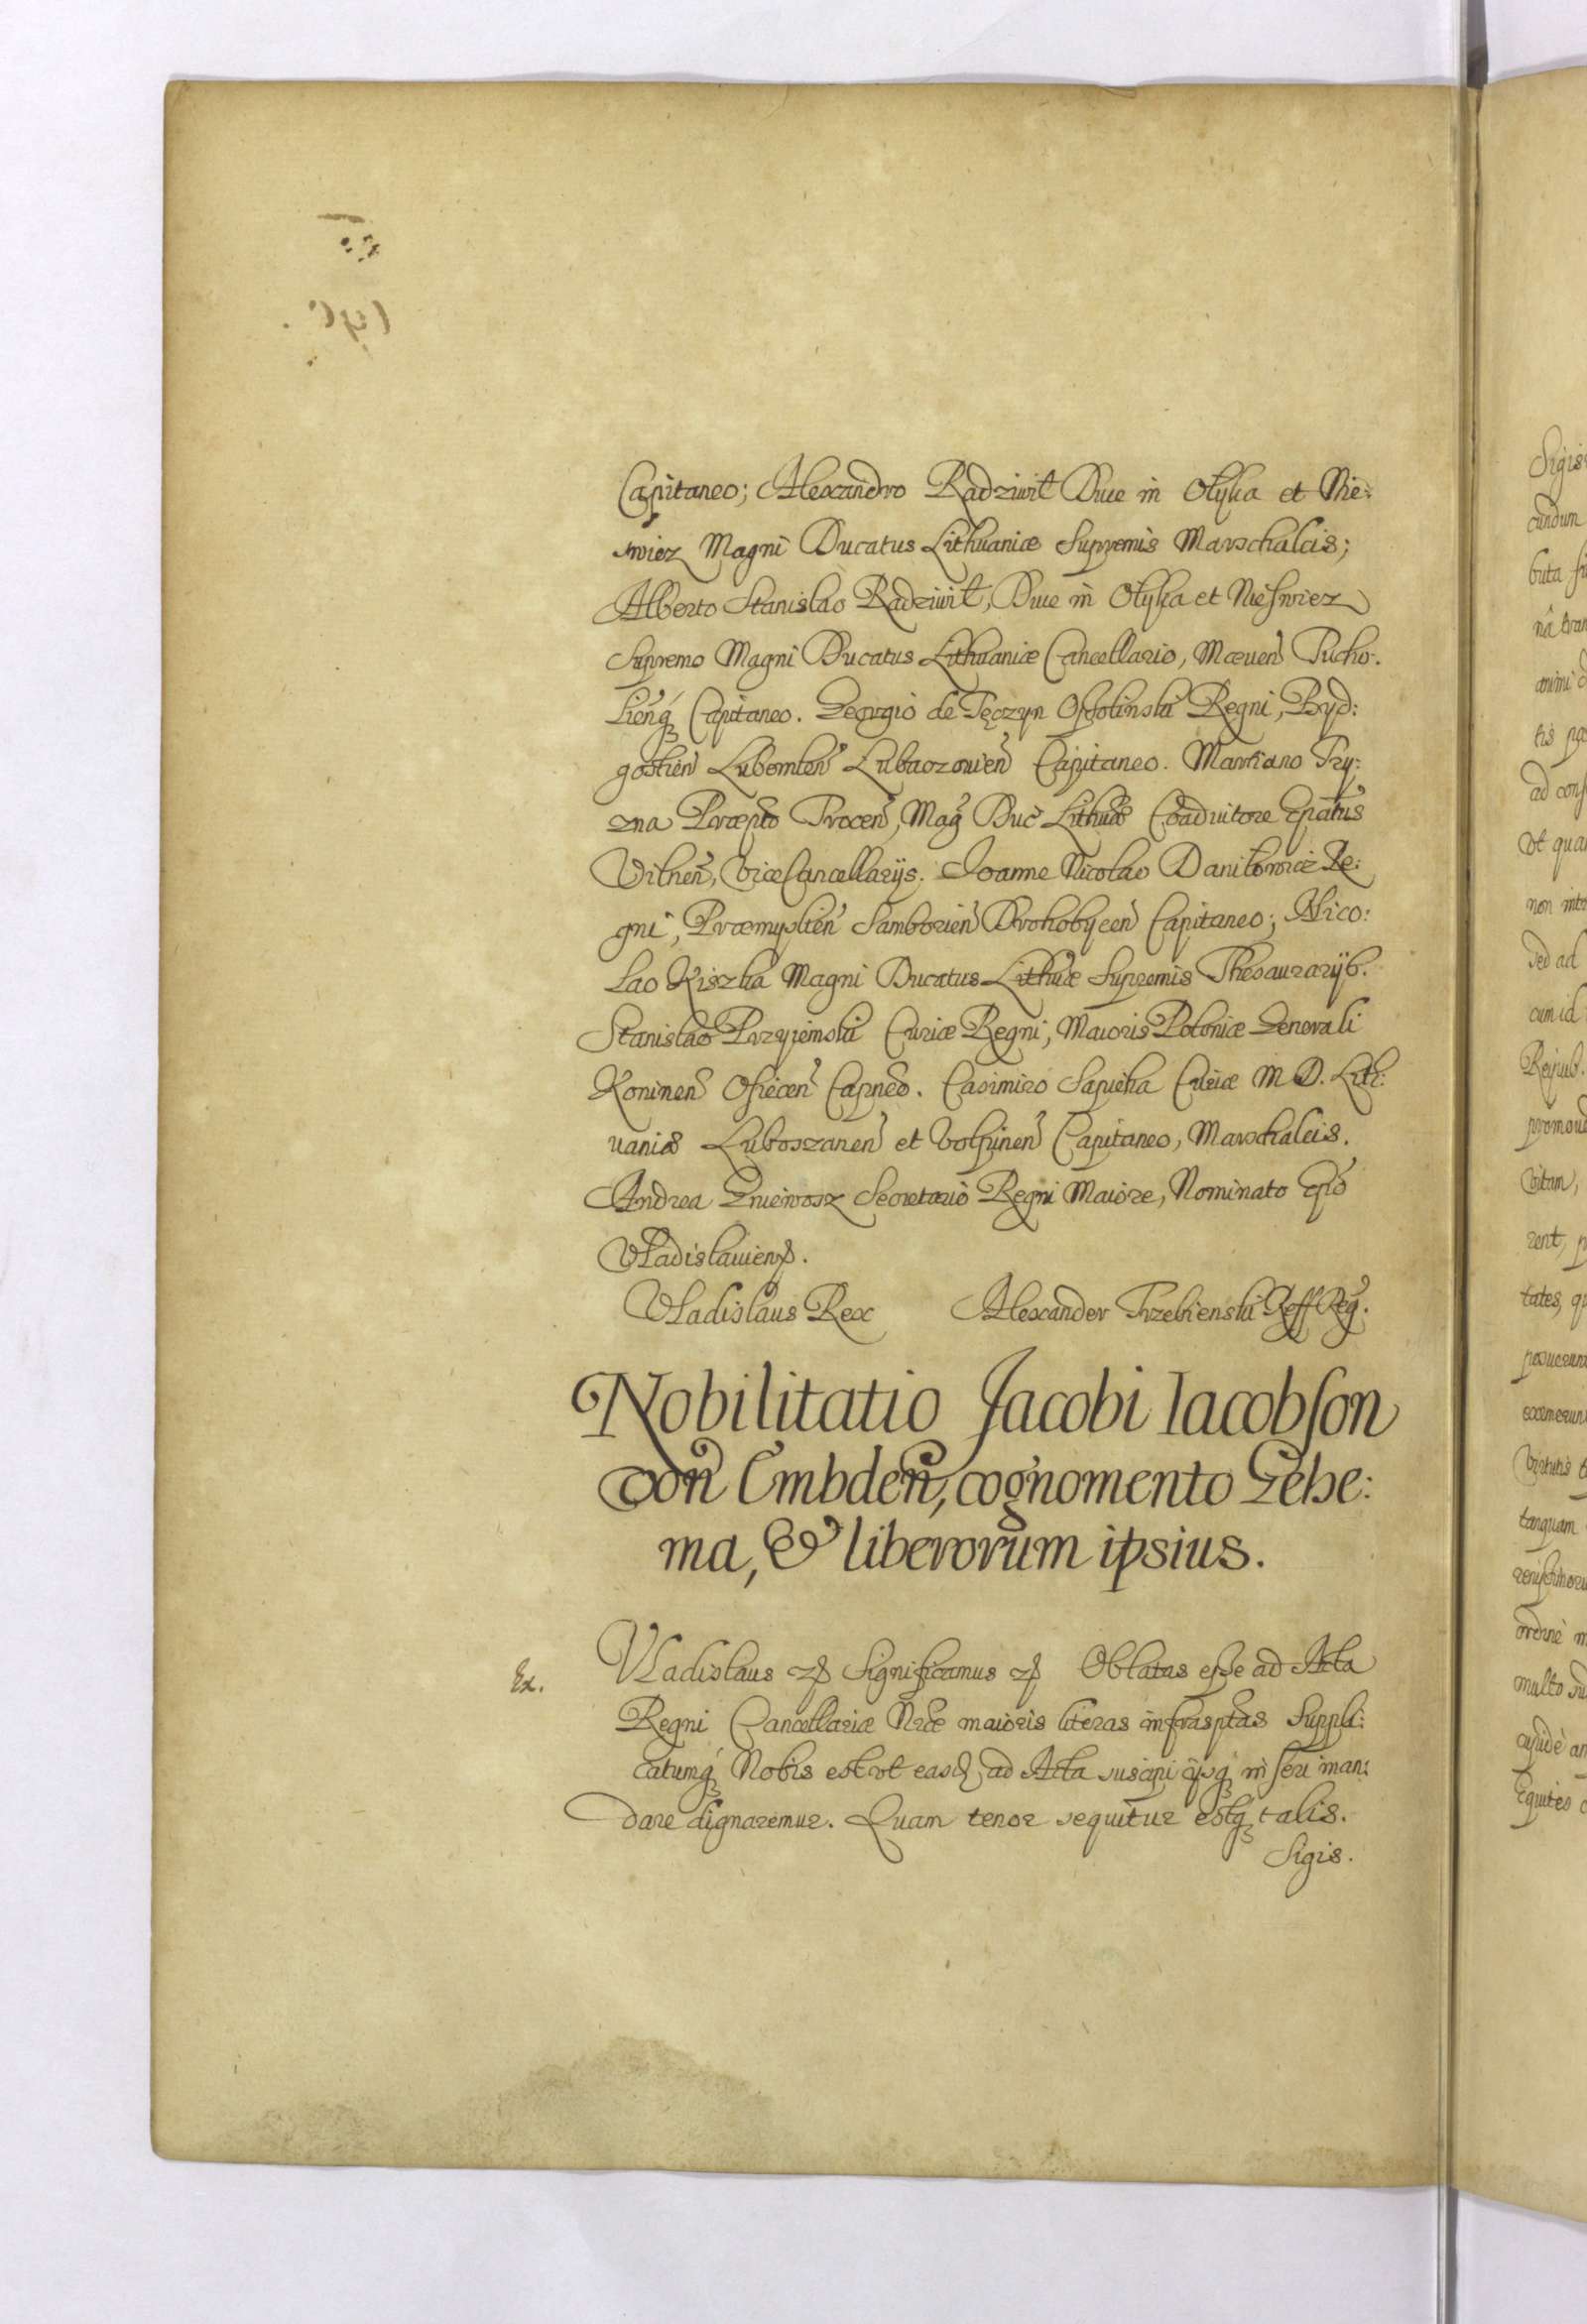 Capitaneo; Alexandro Radziwił Duce in Ołyka et Nie:
swiez Magni Ducatus Lithuaniæ Supremis Marschalcis;
Alberto Stanislao Radziwił, Duce in Ołyka et Nieswiez
Supremo Magni Ducatus Lithuaniæ Cancellario, Mœuen̄ Tucho.
lien̄q Capitaneo. Georgio de Tęczyn Ossolinski Regni, Byd:
gostien̄ Lubomlen̄ Lubaczouien̄ Capitaneo. Martiano Try:
zna Præpto Trocen̄, Mag Duc Lithuæ Coadiutore Epatus
Vilnen̄, ViceCancellarijs. Joanne Nicolao Daniłowicz Re:
gni, Præmyslien̄ Samborien̄ Drohobycen̄ Capitaneo; Nico:
lao Kiszka Magni Ducatus Lithuæ Supremis Thesaurarijs.
Stanislao Przyiemski Curiæ Regni, Maioris Poloniæ Generali
Koninen̄ Osiecen̄ Capneo. Casimiro Sapieha Curiæ M. D. Lith:
uaniæ Luboszanen̄ et Volpinen̄ Capitaneo, Marschalcis.
Andrea Gniewosz Secretario Regni Maiore, Nominato Epo
Vladislauien̄.
Vladislaus Rex Alexander Trzebienski Reff Reg.
Nobilitatio Jacobi Iacobson
von Embden, cognomento Gehe:
ma, & liberorum ipsius.
Ex.
Vladislaus Significamus Oblatas esse ad Acta
Regni Cancellariæ Nræ maioris literas infrasptas Suppli:
catumq Nobis est vt easd ad Acta suscipi ijsq inseri man:
dare dignaremur. Quam tenor sequitur estq talis.
Sigis.